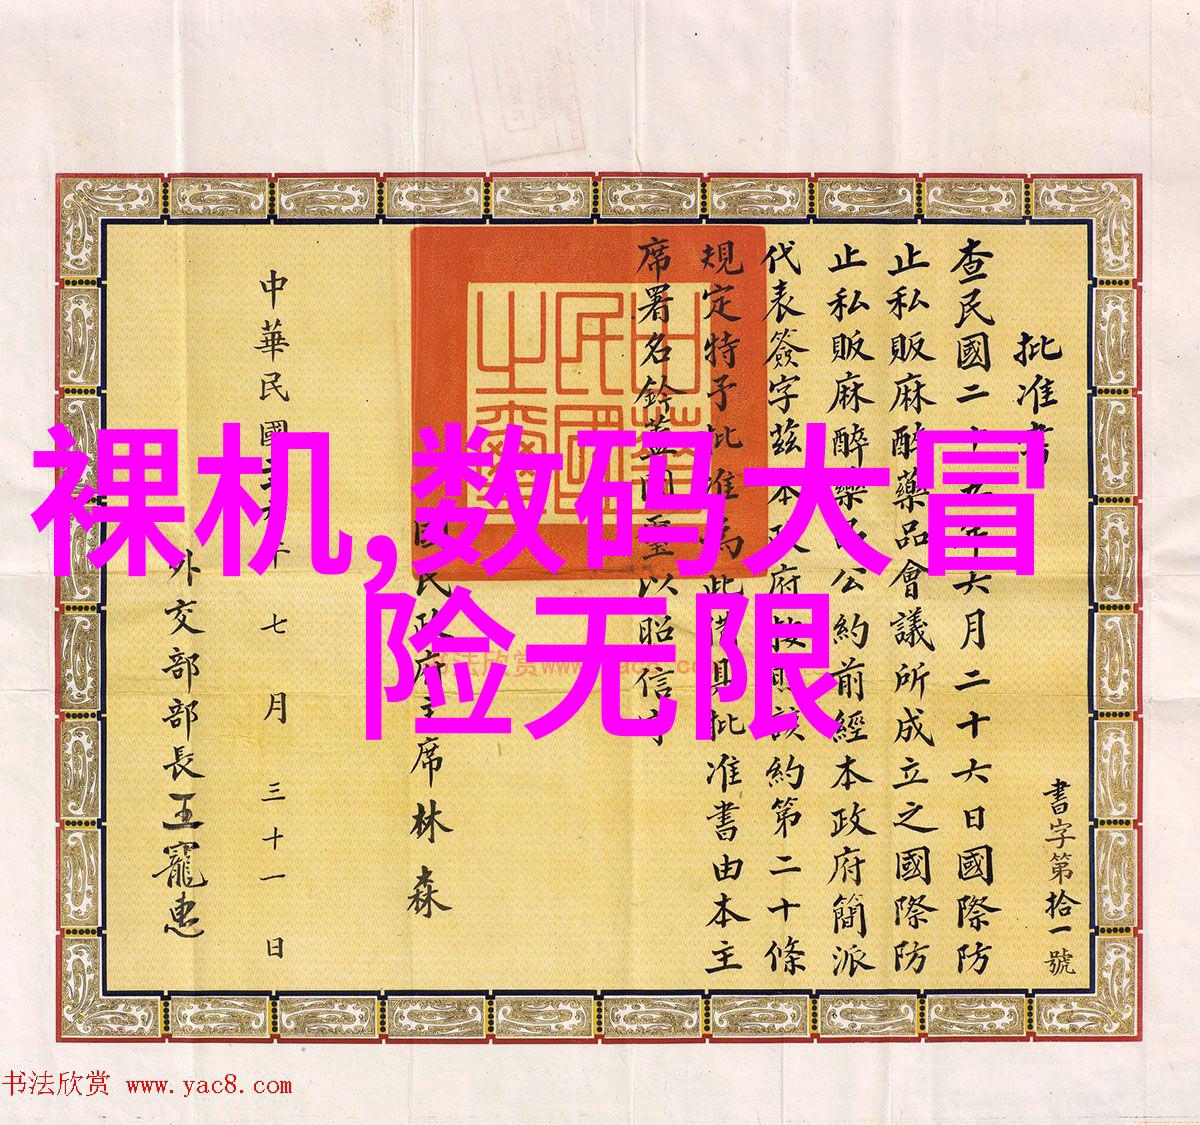 裸机,数码大冒
险无限
書字第拾一號
批准書
查民國二十五年六月二十六日國際防
止私販麻醉藥品會議所成立之國際防
止私販麻醉藥品公約前經本政府簡派
代表簽字茲本政府按照該約第二十條
規定特予批准為此備具批准書由本主
席署名鈐蓋國璽以昭信守
中華民國之璽
國民政府主席林森
中華民國年七月三十一日
外交部部長王寵惠
书法欣赏 www.yac8.com